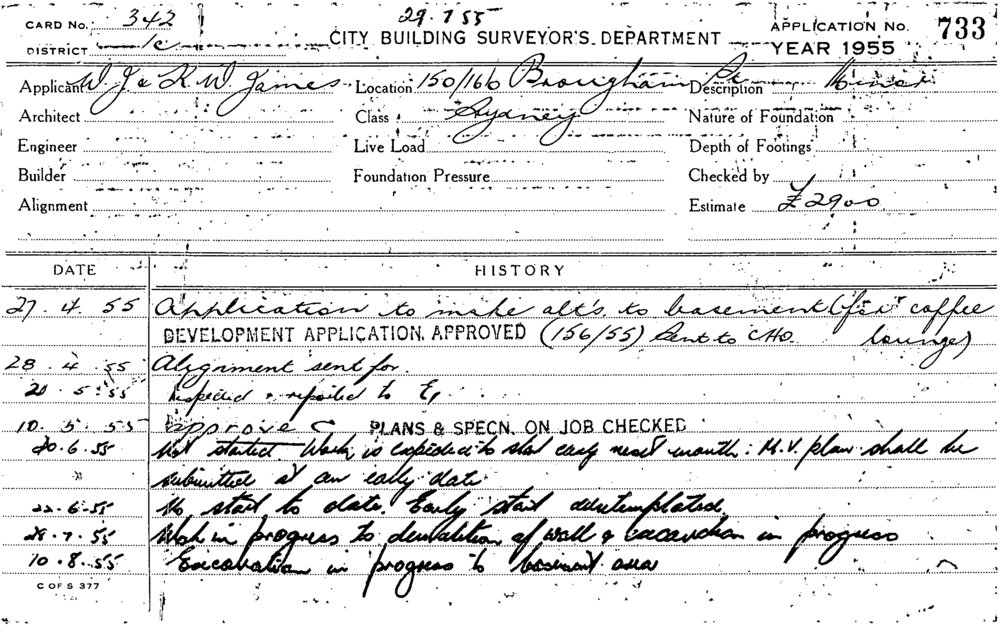 CARD No. 342
29.7.55
APPLICATION No. 733
DISTRICT 1c
CITY BUILDING SURVEYOR'S DEPARTMENT
YEAR 1955
Applicant W J & K W James Location 150/166 Brougham Description Minor
Architect Class Sydney Nature of Foundation
Engineer Live Load Depth of Footings
Builder Foundation Pressure Checked by
Alignment Estimate £2900
DATE HISTORY
27.4.55 Application to make alt's. to basement (for coffee
DEVELOPMENT APPLICATION APPROVED (156/55) Sent to CHO. lounge)
28.4.55 Alignment sent for.
5.55 Inspected & reported to
10.5.55 approve PLANS & SPECN. ON JOB CHECKED
20.6.55 Not started Work is expected to start early next month: M.V. plan shall be
submitted at an early date
22.6.55 No start to date. Early start contemplated.
28.7.55 Work in progress to demolition of wall & excavation in progress
10.8.55 Excavation in progress to basement area
C OF S 377